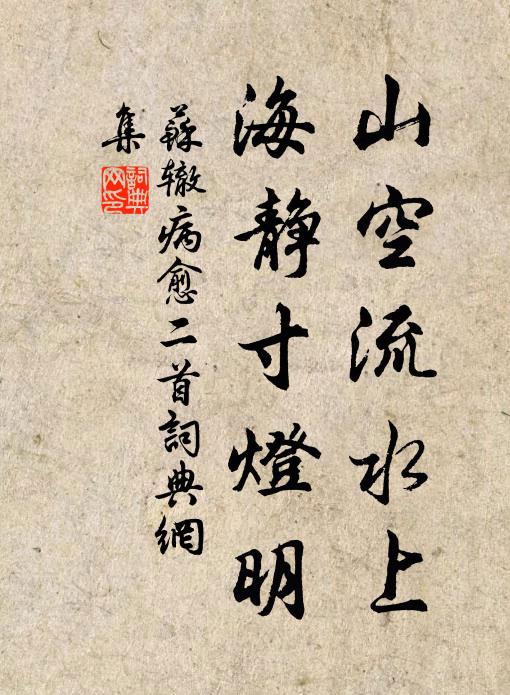 山空流水上
海静寸燈明
蘇辙病愈二首詞典網
集
詞典
网印